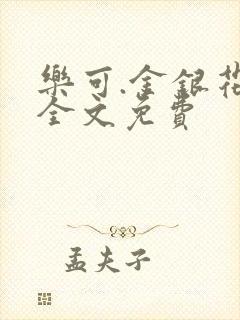 樂可.金銀花
全文免費
孟夫子